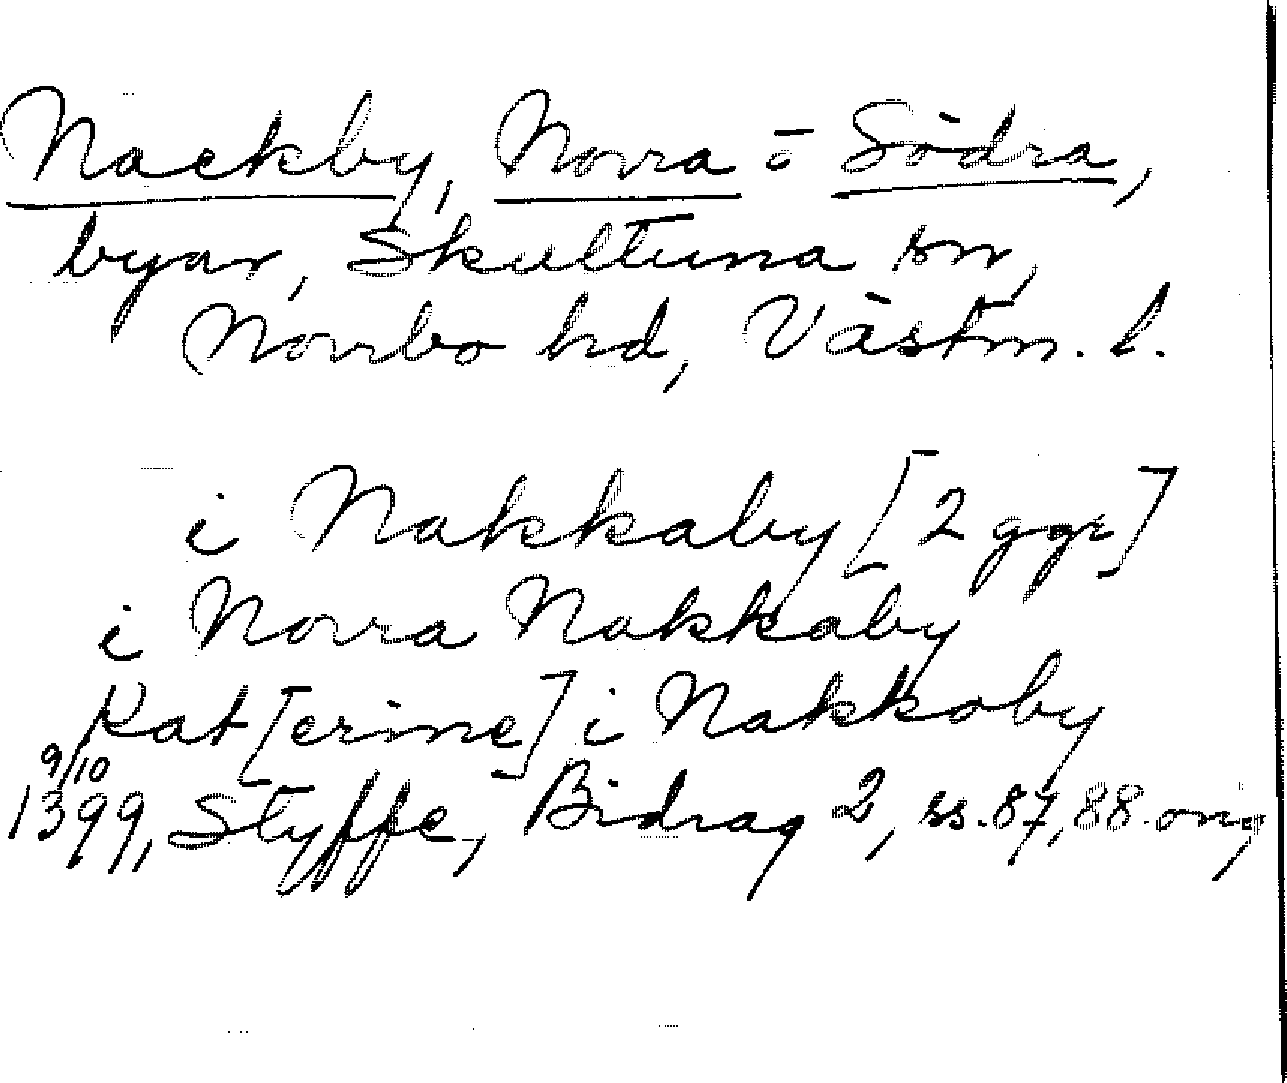 Nackby, Norra o Södra,
byar, Skultuna sn,
Norrbo hd, Västm. l.
i Nakkaby [2 ggr]
i Norra Nakkaby
Kat[erine] i Nakkaby
9/10
1399, Styffe, Bidrag 2, ss. 87, 88. orig